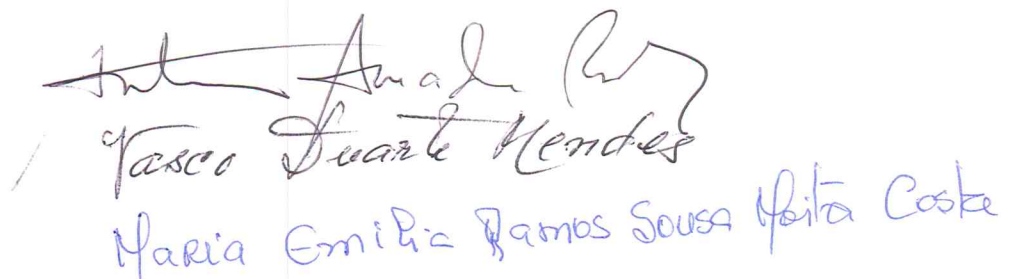 António Amado
Vasco Duarte Mendes
Maria Emilia Ramos Sousa Moitã Costa